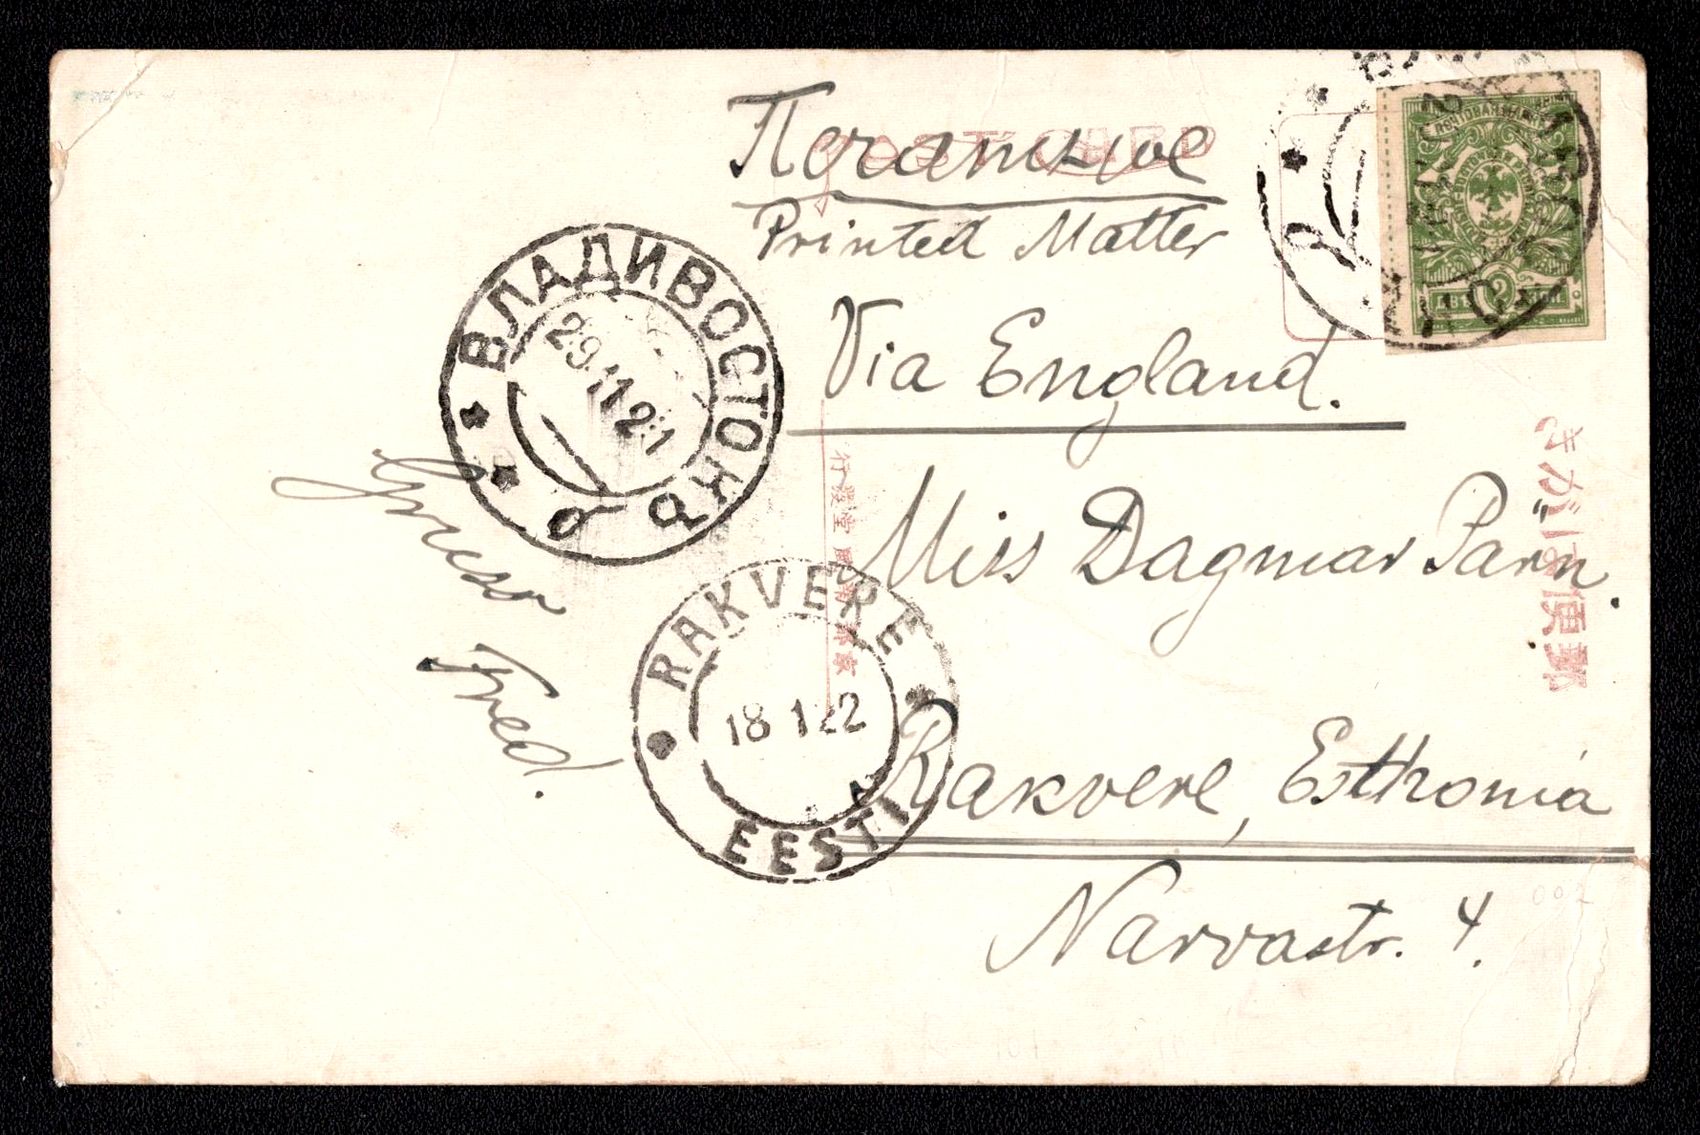 Печатное
POST CARD
Printed Matter
Via England.
Miss Dagmar Parn.
Rakvere, Esthonia
Narvastr. 4.
Fred.
ВЛАДИВОСТОКЪ
29 11 21
RAKVERE
18 1 22
EESTI
ПОЧТОВАЯ МАРКА
2
きかは便郵